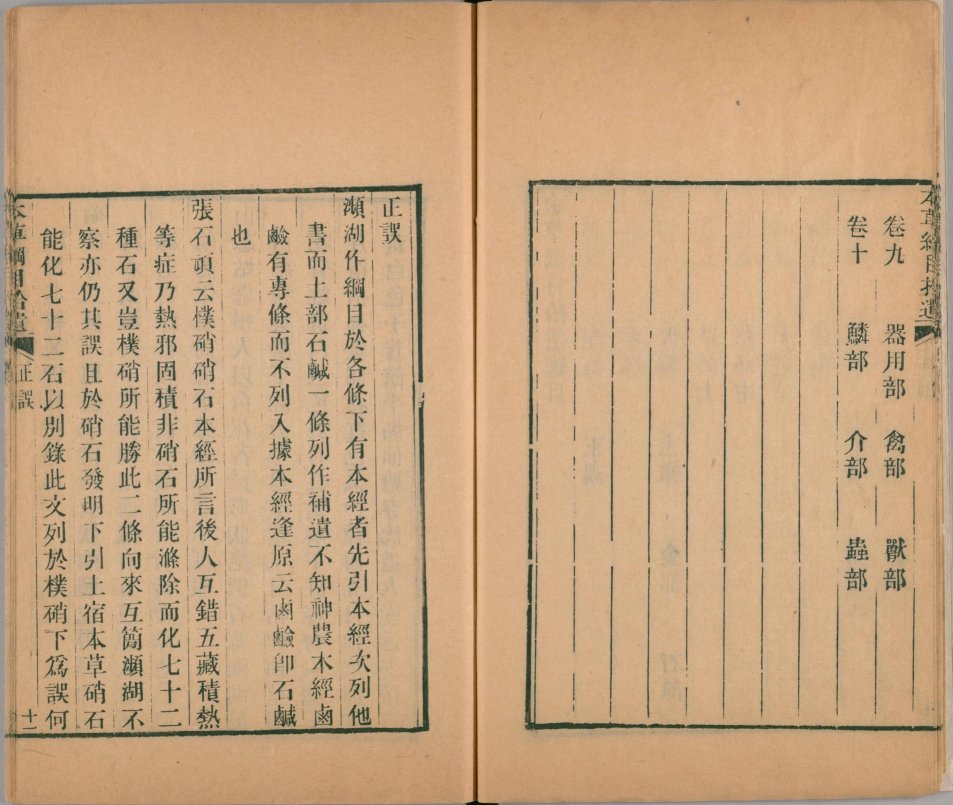 本草綱目拾遺
卷九 器用部 禽部 獸部
卷十 鱗部 介部 蟲部
正誤
瀕湖作綱目於各條下有本經者先引本經次列他
書而土部石鹹一條列作補遺不知神農本經鹵
鹼有專條而不列入據本經逢原云鹵鹼卽石鹹
也
張石頑云樸硝硝石本經所言後人互錯五藏積熱
等症乃熱邪固積非硝石所能滌除而化七十二
種石又豈樸硝所能勝此二條向來互簡瀕湖不
察亦仍其誤且於硝石發明下引土宿本草硝石
能化七十二石以別錄此文列於樸硝下爲誤何
本草綱目拾遺 正誤 十二